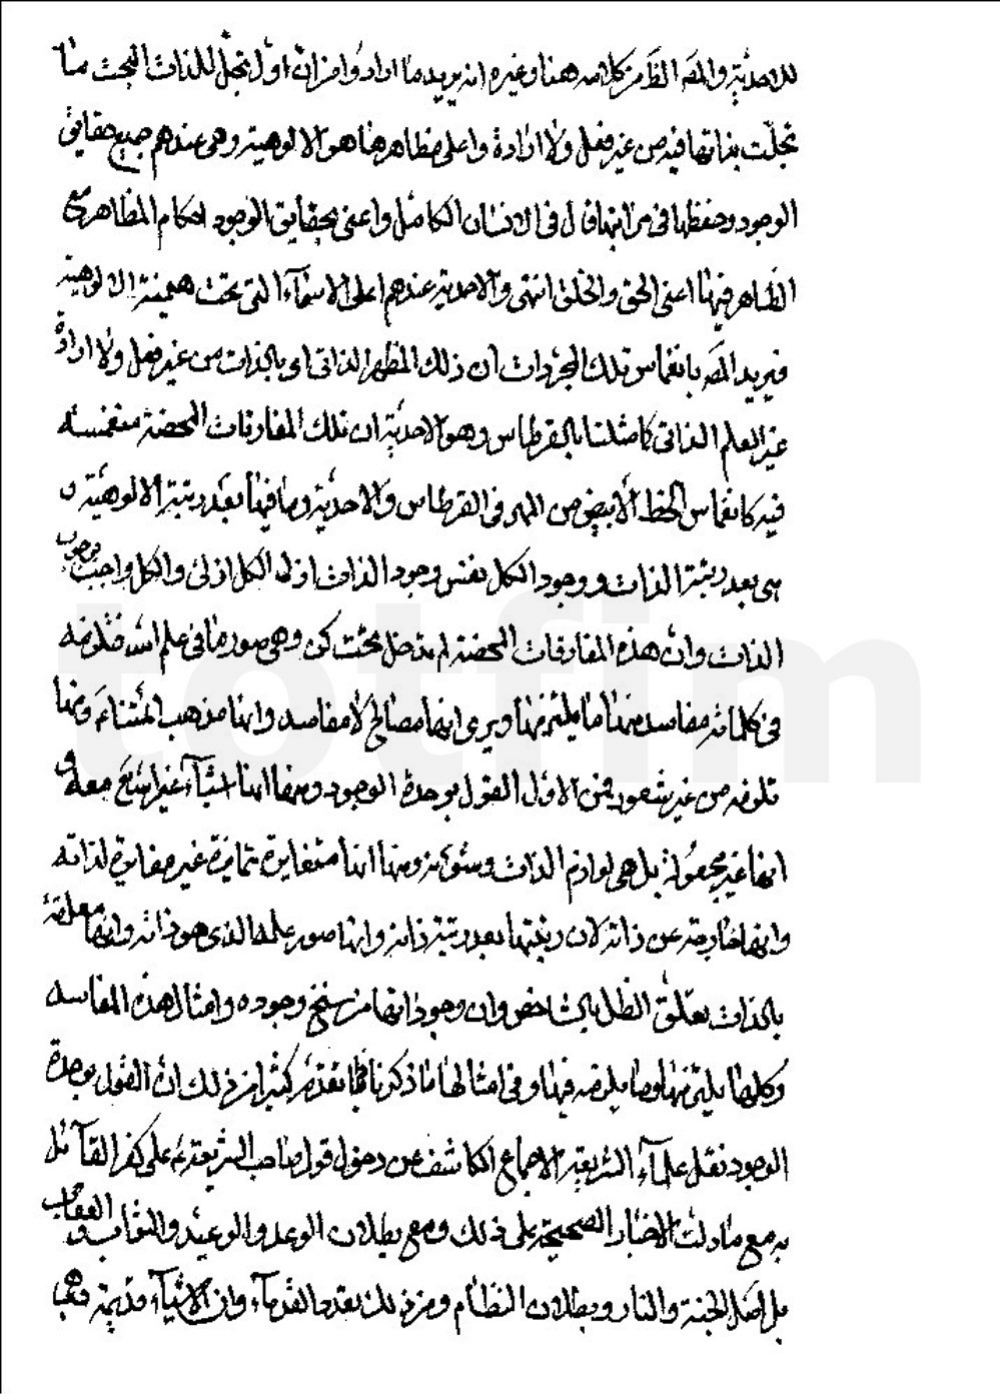 للاحدية والمص الظ من كلامه هنا وغيره انه يريد ما ارادوا من ان اول تجل للذات البحت ما
تجلّت بذاتها فيه من غير فعل ولا ارادة واعلى مظاهرها هو الالوهية وهى عندهم جميع حقايق
الوجود وحفظها فى مراتبها قال فى الانسان الكامل واعنى بحقايق الوجود احكام المظاهر مع
الظاهر فيها اعنى الحق والخلق انتهى والاحدية عندهم اعلى الاسمآء التى تحت هيمنة الالوهية
فيريد المص بانغماس تلك المجردات ان ذلك المظهر الذاتى اى بالذات من غير فعل ولا ارادة
غير العلم الذاتى كما مثلنا بالقرطاس وهو الاحدية ان تلك المفارقات المحضة منغمسة
فيه كانغماس الخط الابيض من المهر فى القرطاس والاحدية وما فيها بعد رتبة الالوهية و
هى بعد رتبة الذات ووجود الكل نفس وجود الذات اذ الكل ازلى والكل واجب بوجوب
الذات وان هذه المفارقات المحضة لم تدخل تحت كن وهى صور ما فى علم الله فتلزمه
فى كلماته مفاسد منها ما يلتزمها ويرى انها مصالح لا مفاسد وانها مذهب المشاء ومنها
تلزمه من غير شعور فمن الاول القول بوحدة الوجود ومنها انها اشيآء غير الله مع معه و
انها غير مجعولة بل هى لوازم الذات وشؤنه ومنها انها متغايرة متمايزة غير مغايرة لذاته
وانها خارجة عن ذاته لان رتبتها بعد رتبة ذاته وانها صور علمه الذى هو ذاته وانها معلقة
بالذات تعلق الظل بالشاخص وان وجوداتها من سنخ وجوده وامثال هذه المفاسد
وكلها يلتزمها وما يلزمه فيها وفى امثالها ما ذكرنا فيما تقدم كثيرا من ذلك ان القول بوحدة
الوجود نقل علمآء الشريعة الاجماع الكاشف عن دخول قول صاحب الشريعة ع على كفر القآئل
به مع ما دلت الاخبار الصحيحة على ذلك ومع بطلان الوعد والوعيد والثواب والعقاب و
بل اصل الجنة والنار وبطلان النظام ومن ذلك تعدد القدمآء وان الاشيآء قديمة